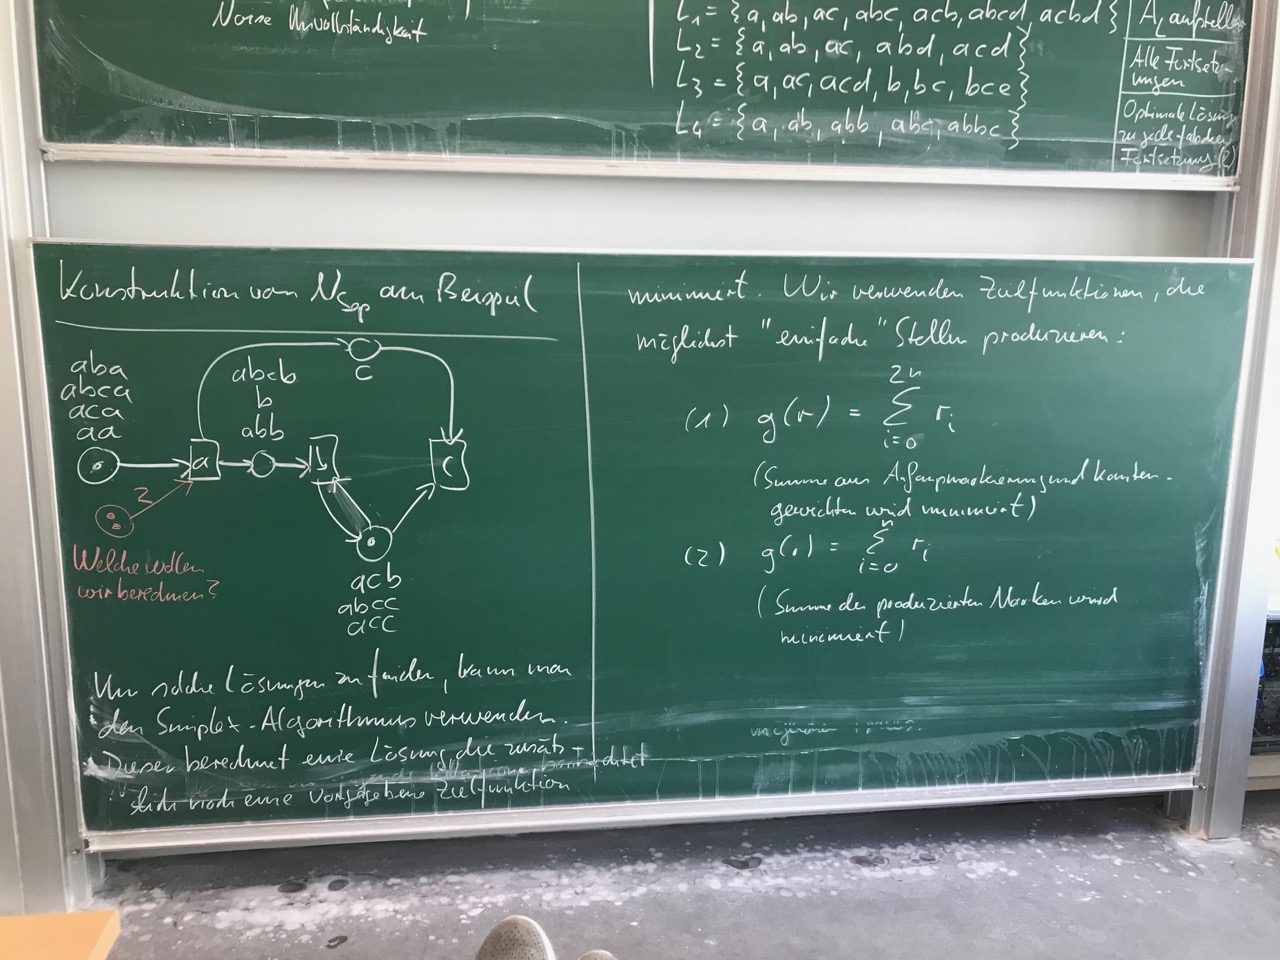 Noise Unvollständigkeit
L₁ = {a, ab, ac, abc, acb, abcd, acbd}
L₂ = {a, ab, ac, abd, acd}
L₃ = {a, ac, acd, b, bc, bce}
L₄ = {a, ab, abb, abc, abbc}
A_L aufstellen
Alle Fortsetz-
ungen
Optimale Lösung
zu jede falschen
Fortsetzung (2)
Konstruktion von N_sep am Beispiel
aba
abca
aca
aa
abcb
b
abb
c
a
b
c
2
Welche wollen
wir berechnen?
acb
abcc
acc
Um solche Lösungen zu finden, kann man
den Simplex-Algorithmus verwenden.
Dieser berechnet eine Lösung, die zusätz-
lich noch eine vorgegebene Zielfunktion
minimiert. Wir verwenden Zielfunktionen, die
möglichst "einfache" Stellen produzieren:
(1) g(r) = ∑_{i=0}^{2n} r_i
(Summe aus Anfangsmarkierung und Kanten-
gewichten wird minimiert)
(2) g(r) = ∑_{i=0}^{n} r_i
(Summe der produzierten Marken wird
minimiert)